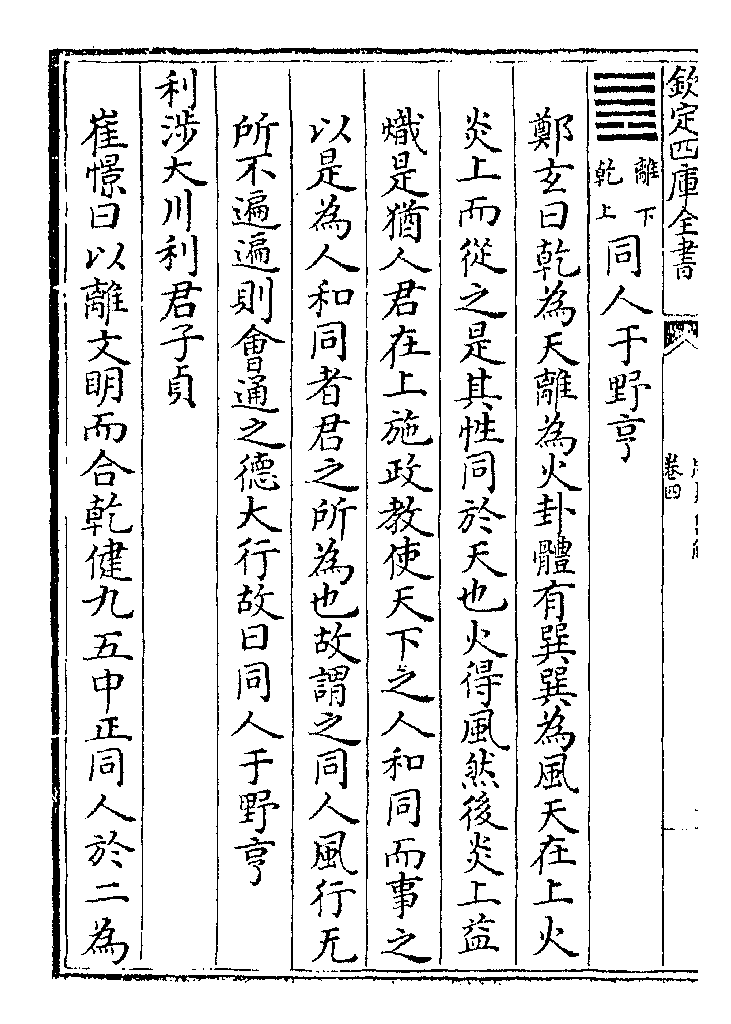 欽定四庫全書
卷四
離下乾上同人于野亨
鄭玄曰乾為天離為火卦體有巽巽為風天在上火
炎上而從之是其性同於天也火得風然後炎上益
熾是猶人君在上施政教使天下之人和同而事之
以是為人和同者君之所為也故謂之同人風行无
所不遍遍則會通之德大行故曰同人于野亨
利涉大川利君子貞
崔憬曰以離文明而合乾健九五中正同人於二為